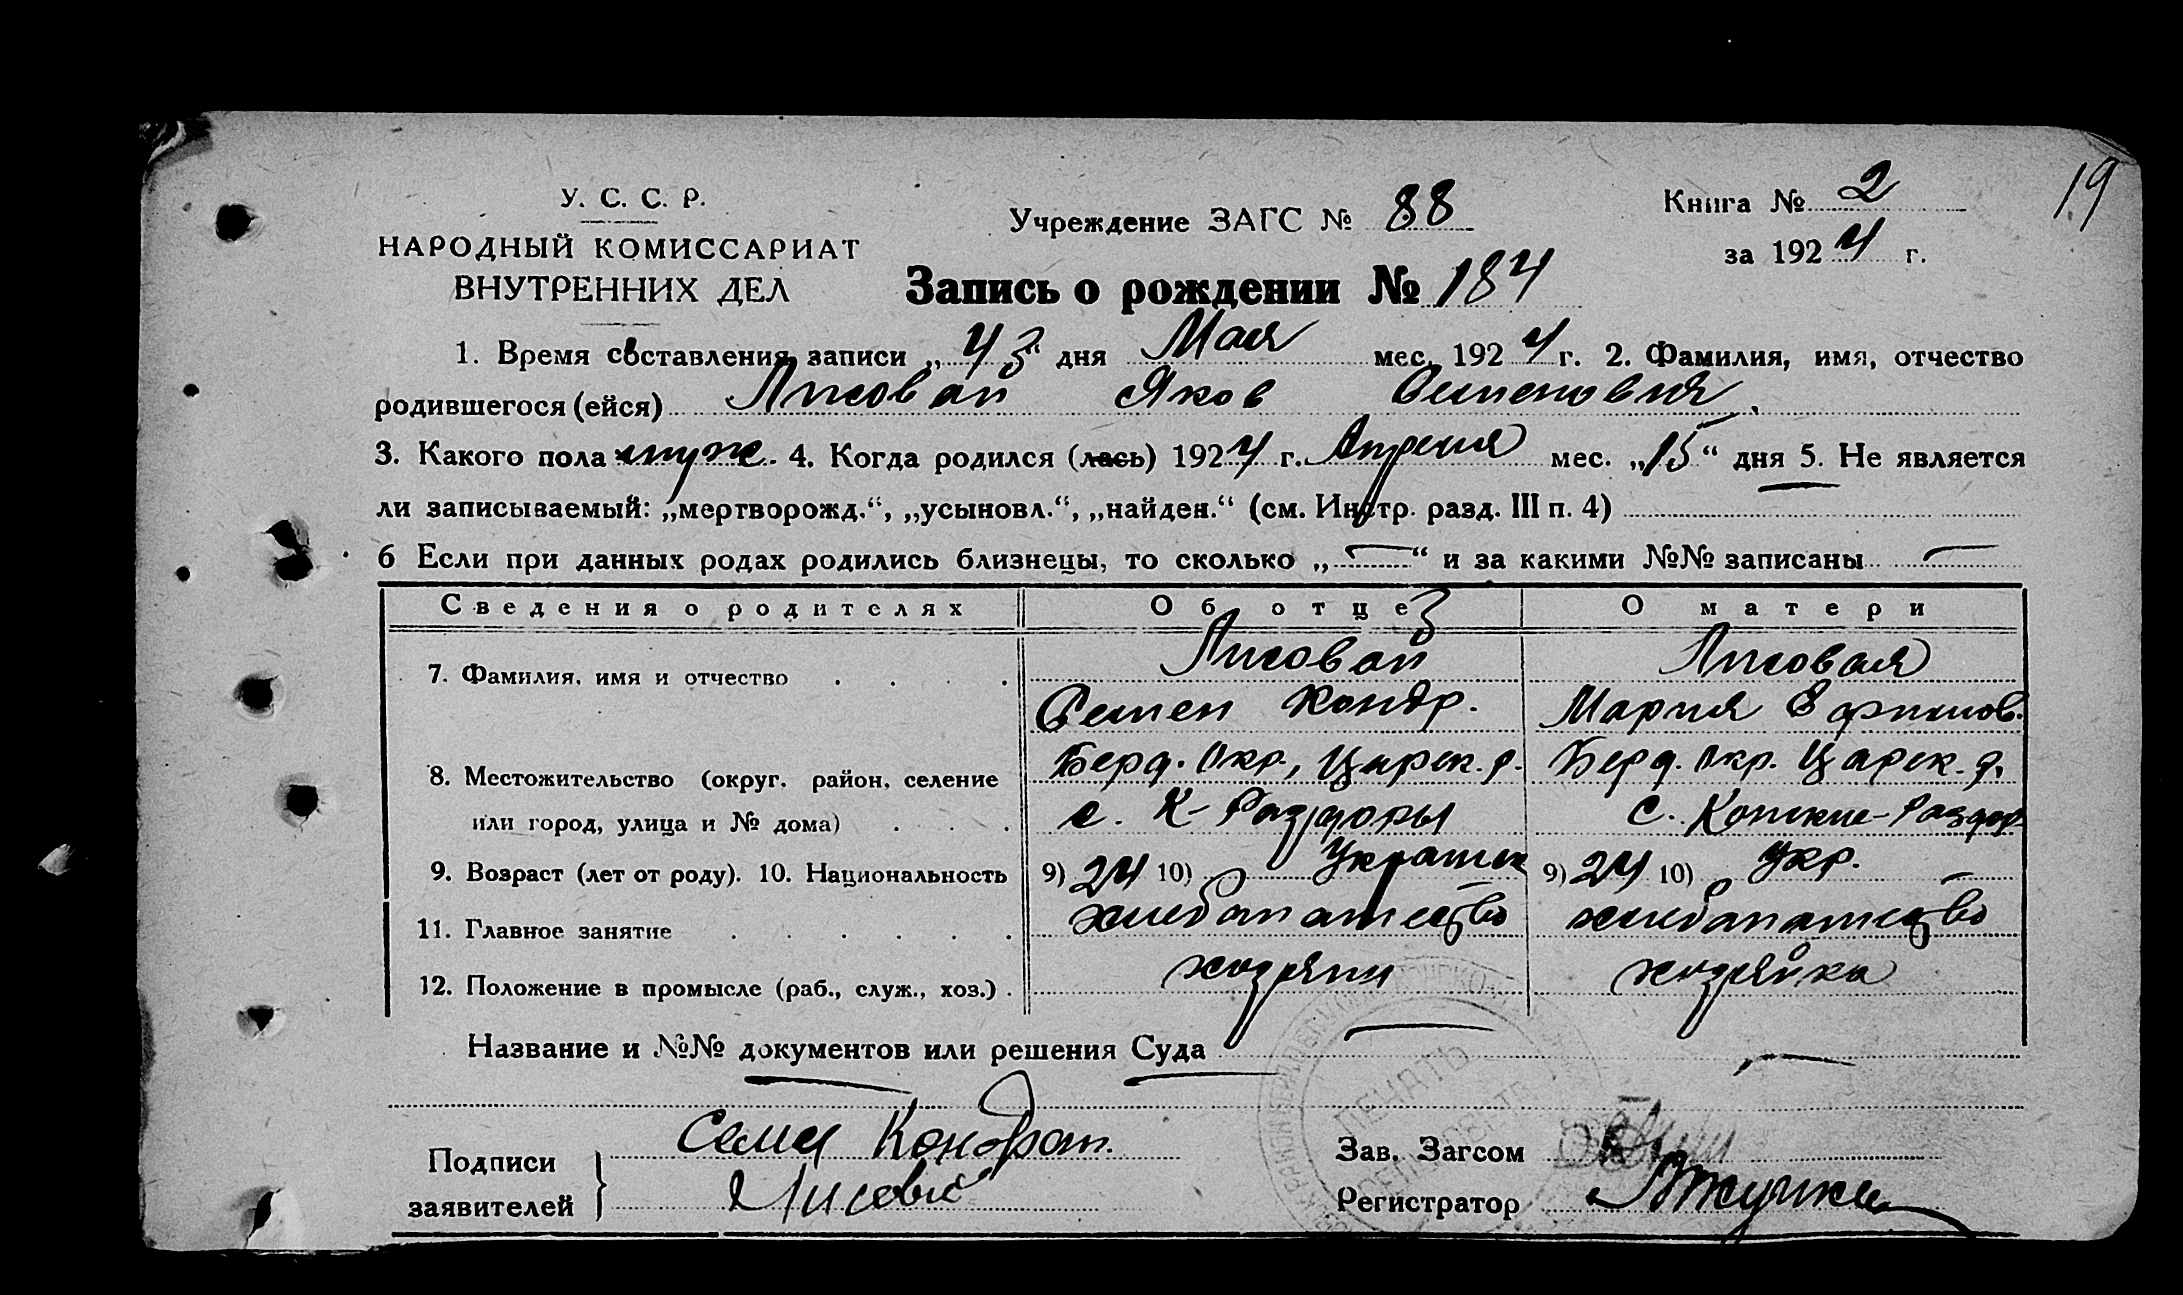 19
У. С. С. Р.
НАРОДНЫЙ КОМИССАРИАТ
ВНУТРЕННИХ ДЕЛ
Учреждение ЗАГС № 88
Книга № 2
за 1924 г.
Запись о рождении № 184
1. Время составления записи „ " дня Мая мес. 1924 г. 2. Фамилия, имя, отчество
родившегося (ейся) Лисовай Яков Семенович.
3. Какого пола муж. 4. Когда родился (лась) 1924 г. Апреля мес. „15" дня 5. Не является
ли записываемый: „мертворожд.", „усыновл.", „найден." (см. Инстр. разд. III п. 4)
6 Если при данных родах родились близнецы, то сколько „—" и за какими №№ записаны —
Сведения о родителях Об отце О матери
7. Фамилия, имя и отчество . . . . Лисовай Лисовая
Семен Кондр. Мария Ефимов.
8. Местожительство (округ, район, селение Берд. Окр., Царек. р. Берд. Окр. Царек. р.
или город, улица и № дома) . . . с. К-Раздоры с. Конские-Раздор.
9. Возраст (лет от роду). 10. Национальность 9) 24 10) Украинец 9) 24 10) Укр.
11. Главное занятие . . . . . . хлебопашество хлебопашество
12. Положение в промысле (раб., служ., хоз.) . хозяин хозяйка
Название и №№ документов или решения Суда — —
Подписи
заявителей
Семен Кондрат.
Лисовий
ПЕЧАТЬ
Зав. Загсом
Регистратор